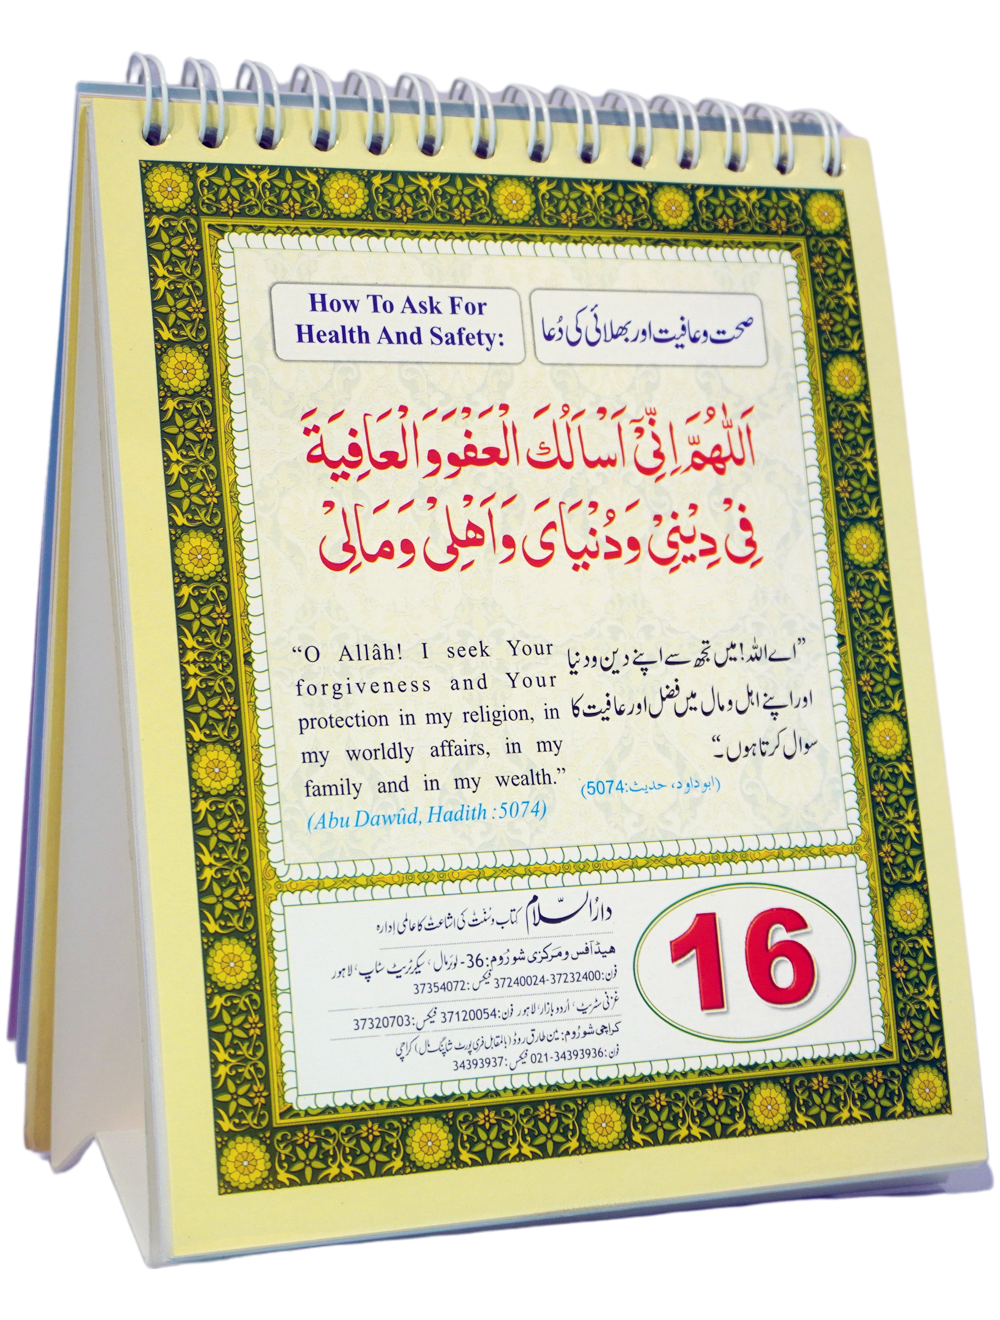 How To Ask For
Health And Safety:
صحت و عافیت اور بھلائی کی دُعا
اَللّٰهُمَّ اِنِّیْٓ اَسْاَلُكَ الْعَفْوَ وَ الْعَافِیَةَ
فِیْ دِیْنِیْ وَ دُنْیَایَ وَ اَهْلِیْ وَ مَالِیْ
“O Allâh! I seek Your
forgiveness and Your
protection in my religion, in
my worldly affairs, in my
family and in my wealth.”
(Abu Dawûd, Hadith :5074)
”اے اللہ! میں تجھ سے اپنے دین و دنیا
اور اپنے اہل و مال میں فضل اور عافیت کا
سوال کرتا ہوں۔“
(ابو داود، حدیث:5074)
دارُالسّلام کتاب و سُنّت کی اشاعت کا عالمی ادارہ
هیڈ آفس و مرکزی شو رُوم: 36- لوئر مال، سیکرٹریٹ سٹاپ، لاہور
فون: 37232400-37240024 فیکس: 37354072
غزنی سٹریٹ، اُردو بازار، لاہور فون: 37120054 فیکس: 37320703
کراچی شو رُوم: مین طارق روڈ (بالمقابل فری پورٹ شاپنگ مال) کراچی
فون: 34393936-021 فیکس: 34393937
16